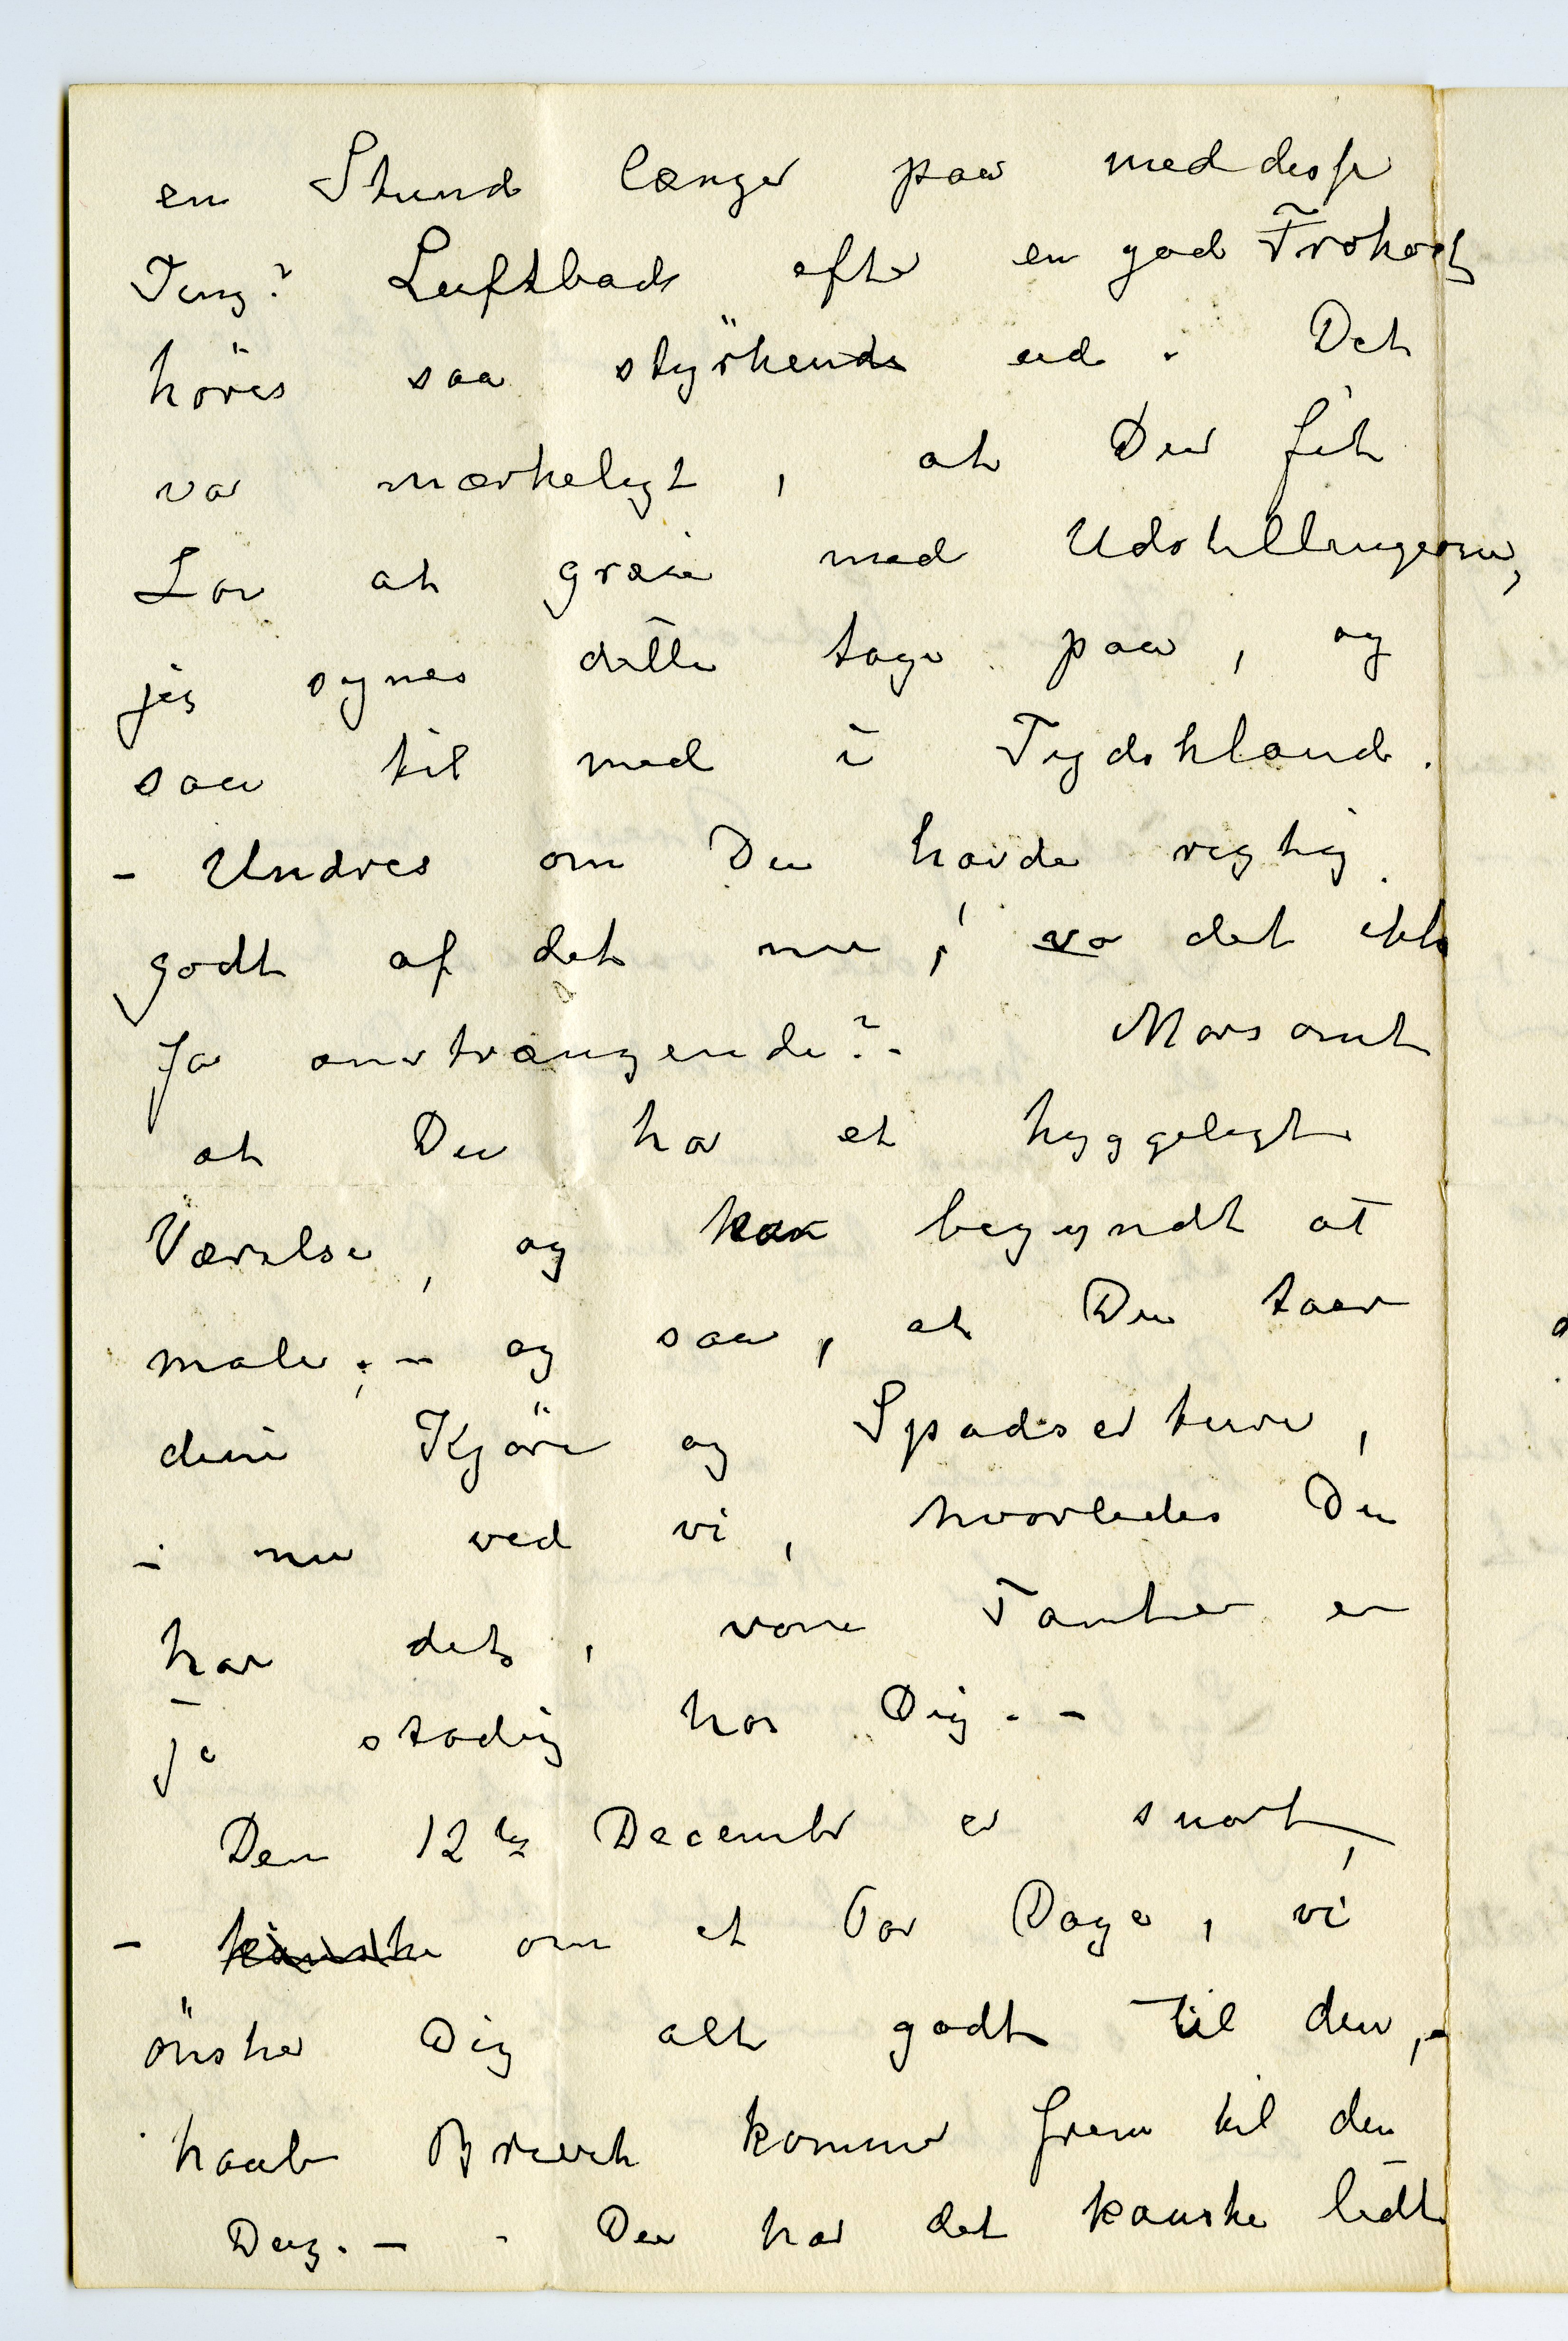 en Stund længer paa med disse
Ting? Luftbad efter en god Frokost
höres saa styrkende ud. Det
var mærkeligt, at Du fik
Lov at greie med Udstillingerne,
jeg synes dette tager paa, og
saa til med i Tydskland.
- Undres om Du havde rigtig
godt af det nu, var det ikke
for anstrængende? - Morsomt
at Du har et hyggeligt
Værelse, og har begyndt at
male; - og saa, at Du taar
dine Kjöre og Spadserture,
- nu ved vi, hvorledes Du
har det, vore Tanker er
jo stadig hos Dig. -
Den 12te December er snart,
- kanske om et Par Dage, vi
önsker Dig alt godt til den,
haaber Brevet kommer frem til den
Dag. - - Du har det kanske lidt